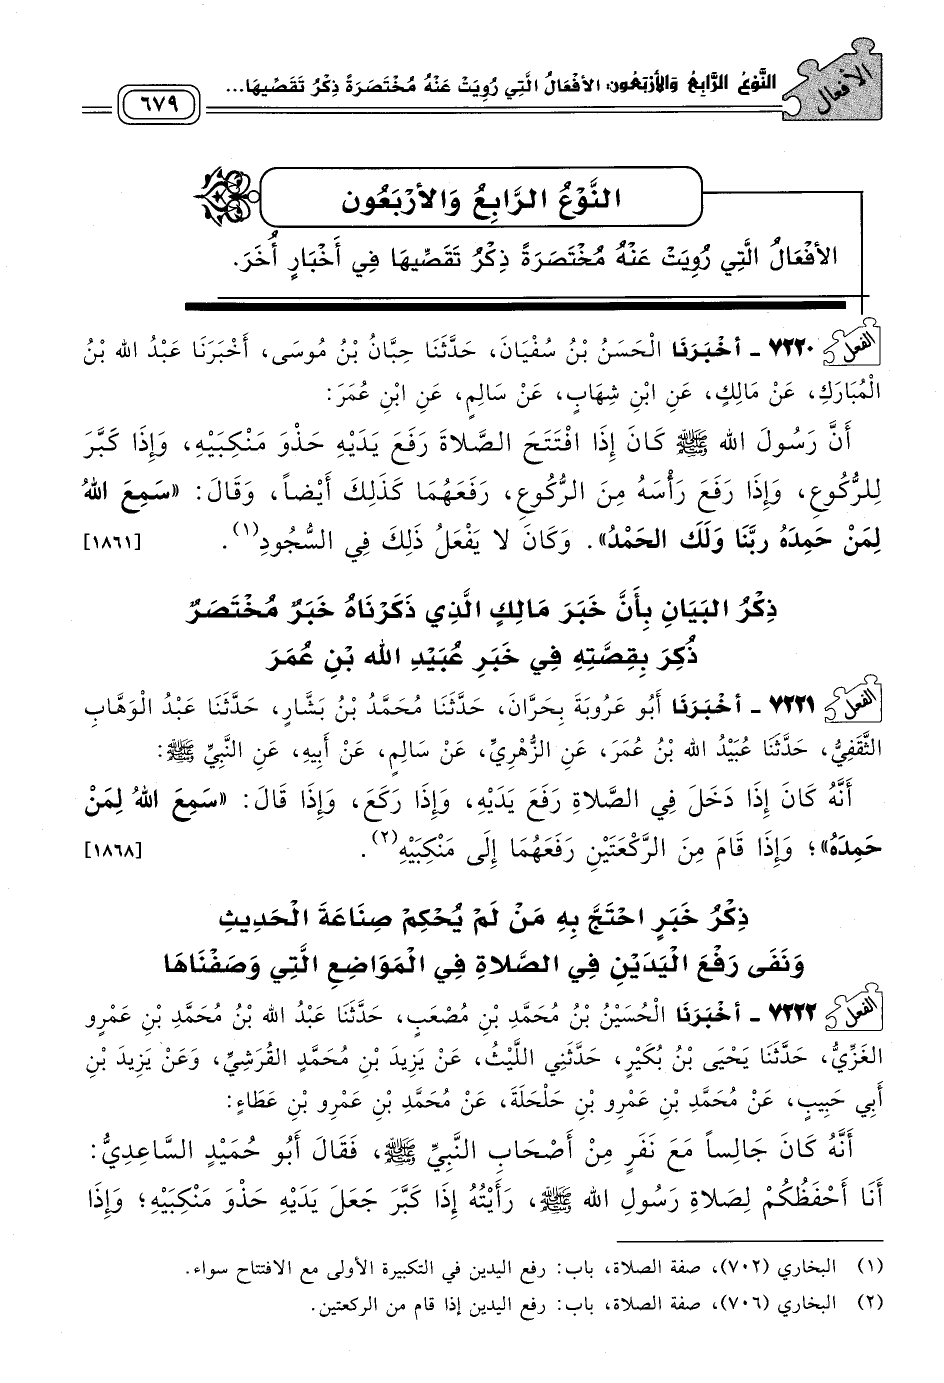 الأفعال
النَّوْعُ الرَّابِعُ وَالأَرْبَعُونَ: الأَفْعَالُ الَّتِي رُوِيَتْ عَنْهُ مُخْتَصَرَةً ذِكْرُ تَقَصِّيهَا...
٦٧٩
النَّوْعُ الرَّابِعُ وَالأَرْبَعُون
الأَفْعَالُ الَّتِي رُوِيَتْ عَنْهُ مُخْتَصَرَةً ذِكْرُ تَقَصِّيهَا فِي أَخْبَارٍ أُخَرَ.
الفعل ٧٢٢٠ ـ أخْبَرَنَا الْحَسَنُ بْنُ سُفْيَانَ، حَدَّثَنَا حِبَّانُ بْنُ مُوسَى، أَخْبَرَنَا عَبْدُ الله بْنُ
الْمُبَارَكِ، عَنْ مَالِكٍ، عَنِ ابْنِ شِهَابٍ، عَنْ سَالِمٍ، عَنِ ابْنِ عُمَرَ:
أَنَّ رَسُولَ الله ﷺ كَانَ إِذَا افْتَتَحَ الصَّلاةَ رَفَعَ يَدَيْهِ حَذْوَ مَنْكِبَيْهِ، وَإِذَا كَبَّرَ
لِلرُّكُوعِ، وَإِذَا رَفَعَ رَأْسَهُ مِنَ الرُّكُوعِ، رَفَعَهُمَا كَذَلِكَ أَيْضاً، وَقَالَ: «سَمِعَ اللهُ
لِمَنْ حَمِدَهُ ربَّنَا وَلَكَ الحَمْدُ». وَكَانَ لا يَفْعَلُ ذَلِكَ فِي السُّجُودِ(١). [١٨٦١]
ذِكْرُ البَيَانِ بِأَنَّ خَبَرَ مَالِكٍ الَّذِي ذَكَرْنَاهُ خَبَرٌ مُخْتَصَرٌ
ذُكِرَ بِقِصَّتِهِ فِي خَبَرِ عُبَيْدِ الله بْنِ عُمَرَ
الفعل ٧٢٢١ ـ أخْبَرَنَا أَبُو عَرُوبَةَ بِحَرَّانَ، حَدَّثَنَا مُحَمَّدُ بْنُ بَشَّارٍ، حَدَّثَنَا عَبْدُ الْوَهَّابِ
الثَّقَفِيُّ، حَدَّثَنَا عُبَيْدُ الله بْنُ عُمَرَ، عَنِ الزُّهْرِيِّ، عَنْ سَالِمٍ، عَنْ أَبِيهِ، عَنِ النَّبِيِّ ﷺ:
أَنَّهُ كَانَ إِذَا دَخَلَ فِي الصَّلاةِ رَفَعَ يَدَيْهِ، وَإِذَا رَكَعَ، وَإِذَا قَالَ: «سَمِعَ اللهُ لِمَنْ
حَمِدَهُ»؛ وَإِذَا قَامَ مِنَ الرَّكْعَتَيْنِ رَفَعَهُمَا إِلَى مَنْكِبَيْهِ(٢). [١٨٦٨]
ذِكْرُ خَبَرٍ احْتَجَّ بِهِ مَنْ لَمْ يُحْكِمْ صِنَاعَةَ الْحَدِيثِ
وَنَفَى رَفْعَ اليَدَيْنِ فِي الصَّلاةِ فِي الْمَوَاضِعِ الَّتِي وَصَفْنَاهَا
الفعل ٧٢٢٢ ـ أخْبَرَنَا الْحُسَيْنُ بْنُ مُحَمَّدِ بْنِ مُصْعَبٍ، حَدَّثَنَا عَبْدُ الله بْنُ مُحَمَّدِ بْنِ عَمْرٍو
الغَزِّيُّ، حَدَّثَنَا يَحْيَى بْنُ بُكَيْرٍ، حَدَّثَنِي اللَّيْثُ، عَنْ يَزِيدَ بْنِ مُحَمَّدٍ القُرَشِيِّ، وَعَنْ يَزِيدَ بْنِ
أَبِي حَبِيبٍ، عَنْ مُحَمَّدِ بْنِ عَمْرِو بْنِ حَلْحَلَةَ، عَنْ مُحَمَّدِ بْنِ عَمْرِو بْنِ عَطَاءٍ:
أَنَّهُ كَانَ جَالِساً مَعَ نَفَرٍ مِنْ أَصْحَابِ النَّبِيِّ ﷺ، فَقَالَ أَبُو حُمَيْدٍ السَّاعِدِيُّ:
أَنَا أَحْفَظُكُمْ لِصَلاةِ رَسُولِ الله ﷺ، رَأَيْتُهُ إِذَا كَبَّرَ جَعَلَ يَدَيْهِ حَذْوَ مَنْكِبَيْهِ؛ وَإِذَا
(١) البخاري (٧٠٢)، صفة الصلاة، باب: رفع اليدين في التكبيرة الأولى مع الافتتاح سواء.
(٢) البخاري (٧٠٦)، صفة الصلاة، باب: رفع اليدين إذا قام من الركعتين.